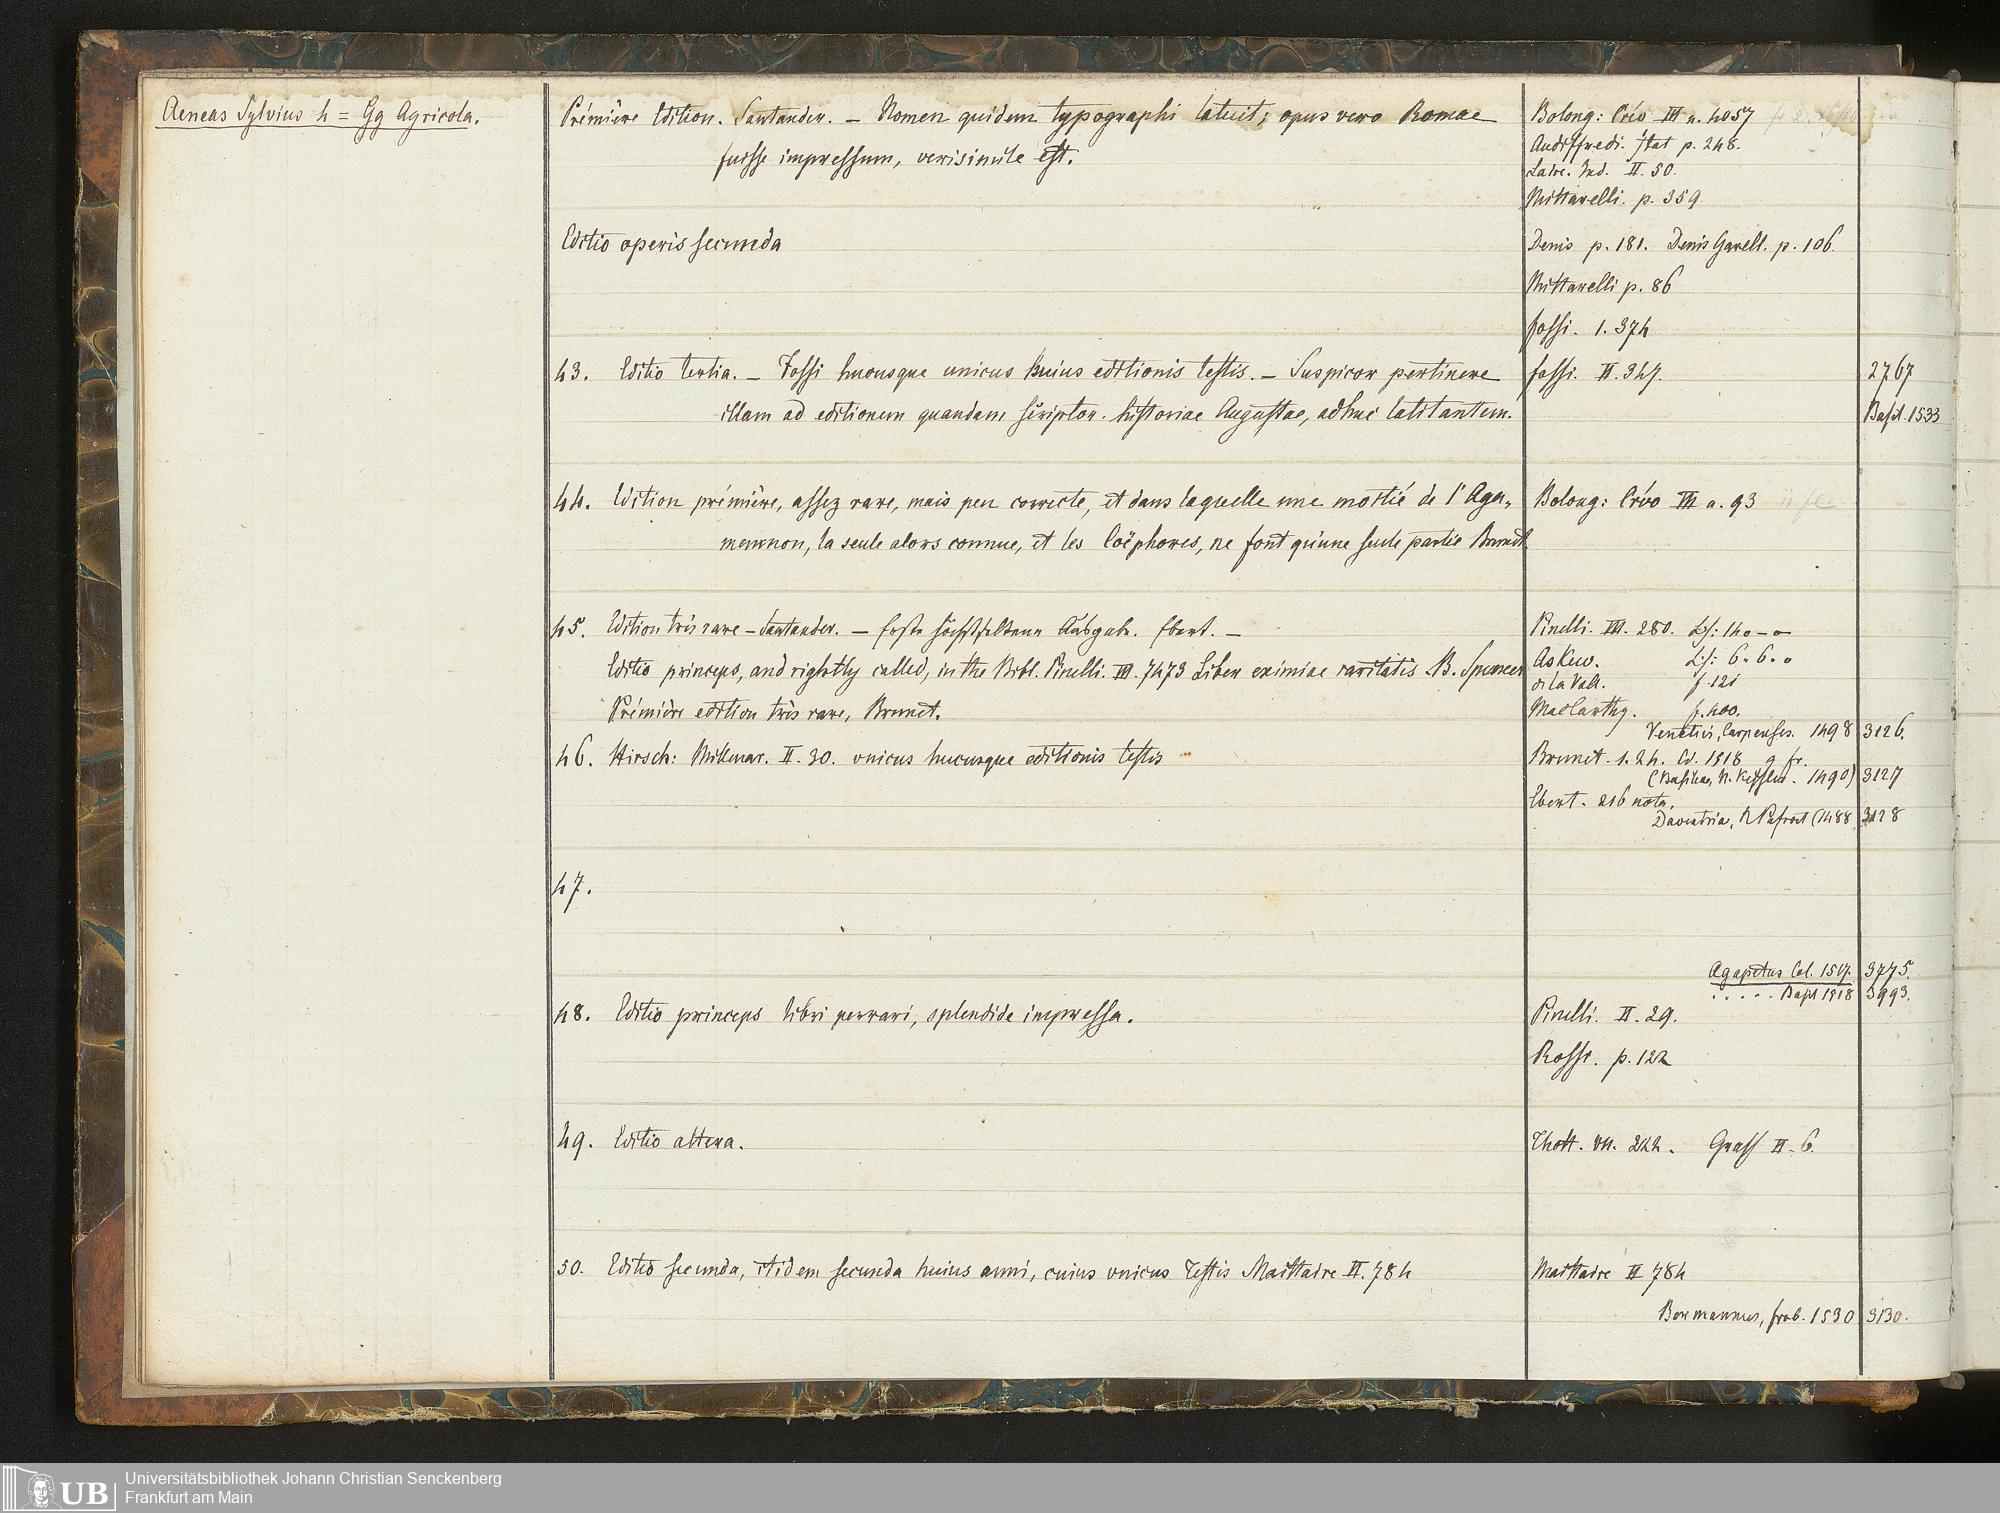 Aeneas Sylvius 4 = Gg Agricola.
Prémière Edition. Santander. — Nomen quidem typographi latuit; opus vero Romae
fuisse impressum, verisimile est.
Bolong: Crév III n. 4057
Audiffredi. Ital p. 248.
Laire. Ind. II. 50.
Mittarelli. p. 359
Editio operis secunda
Denis p. 181. Denis Garell. p. 106.
Mittarelli p. 86
fossi. 1. 374
43. Editio tertia. — Fossi hucusque unicus huius editionis testis. — Suspicor pertinere
illam ad editionem quandam scriptor. historiae Augustae, adhuc latitantem.
fossi. II. 347.
2767
Basil. 1533
44. Edition prémière, assez rare, mais peu correcte, et dans laquelle une mostié de l'Aga-
memnon, la seule alors connue, et les Coëphores, ne font qu'une seule partie Brunet
Bolong: Crév III n. 93
45. Edition très rare — Santander. — Erste höchstseltene Ausgabe. Ebert. —
Editio princeps, and rightly called, in the Bibl. Pinelli. III. 7473 Liber eximiae raritatis. B. Spencer
Prémière edition très rare, Brunet.
Pinelli. III. 280. Ls: 14 0 – 0 –
Askew. Ls: 6. 6. 0
de la Vall. f. 121
MacCarthy. f. 400.
Venetiis, Carpenses. 1498 3126.
46. Hirsch: Millenar. II. 30. unicus hucusque editionis testis
Brunet. 1. 24. Ed. 1518 9 fr.
(Basileae, N. Kessler. 1490) 3127
Ebert. 216 nota.
Daventria, R Pafraet (1488 3128
47.
Agapetus Col. 1517. 3775.
. . . . . Basil 1518 3993.
48. Editio princeps libri perrari, splendide impressa.
Pinelli. II. 29.
Rossi. p. 122
49. Editio altera.
Thott. VII. 244. Grass II. 6.
50. Editio secunda, itidem secunda huius anni, cuius unicus testis Maittaire II. 784
Maittaire II 784
Bormannus, frob. 1530 3130.
UB
Universitätsbibliothek Johann Christian Senckenberg
Frankfurt am Main